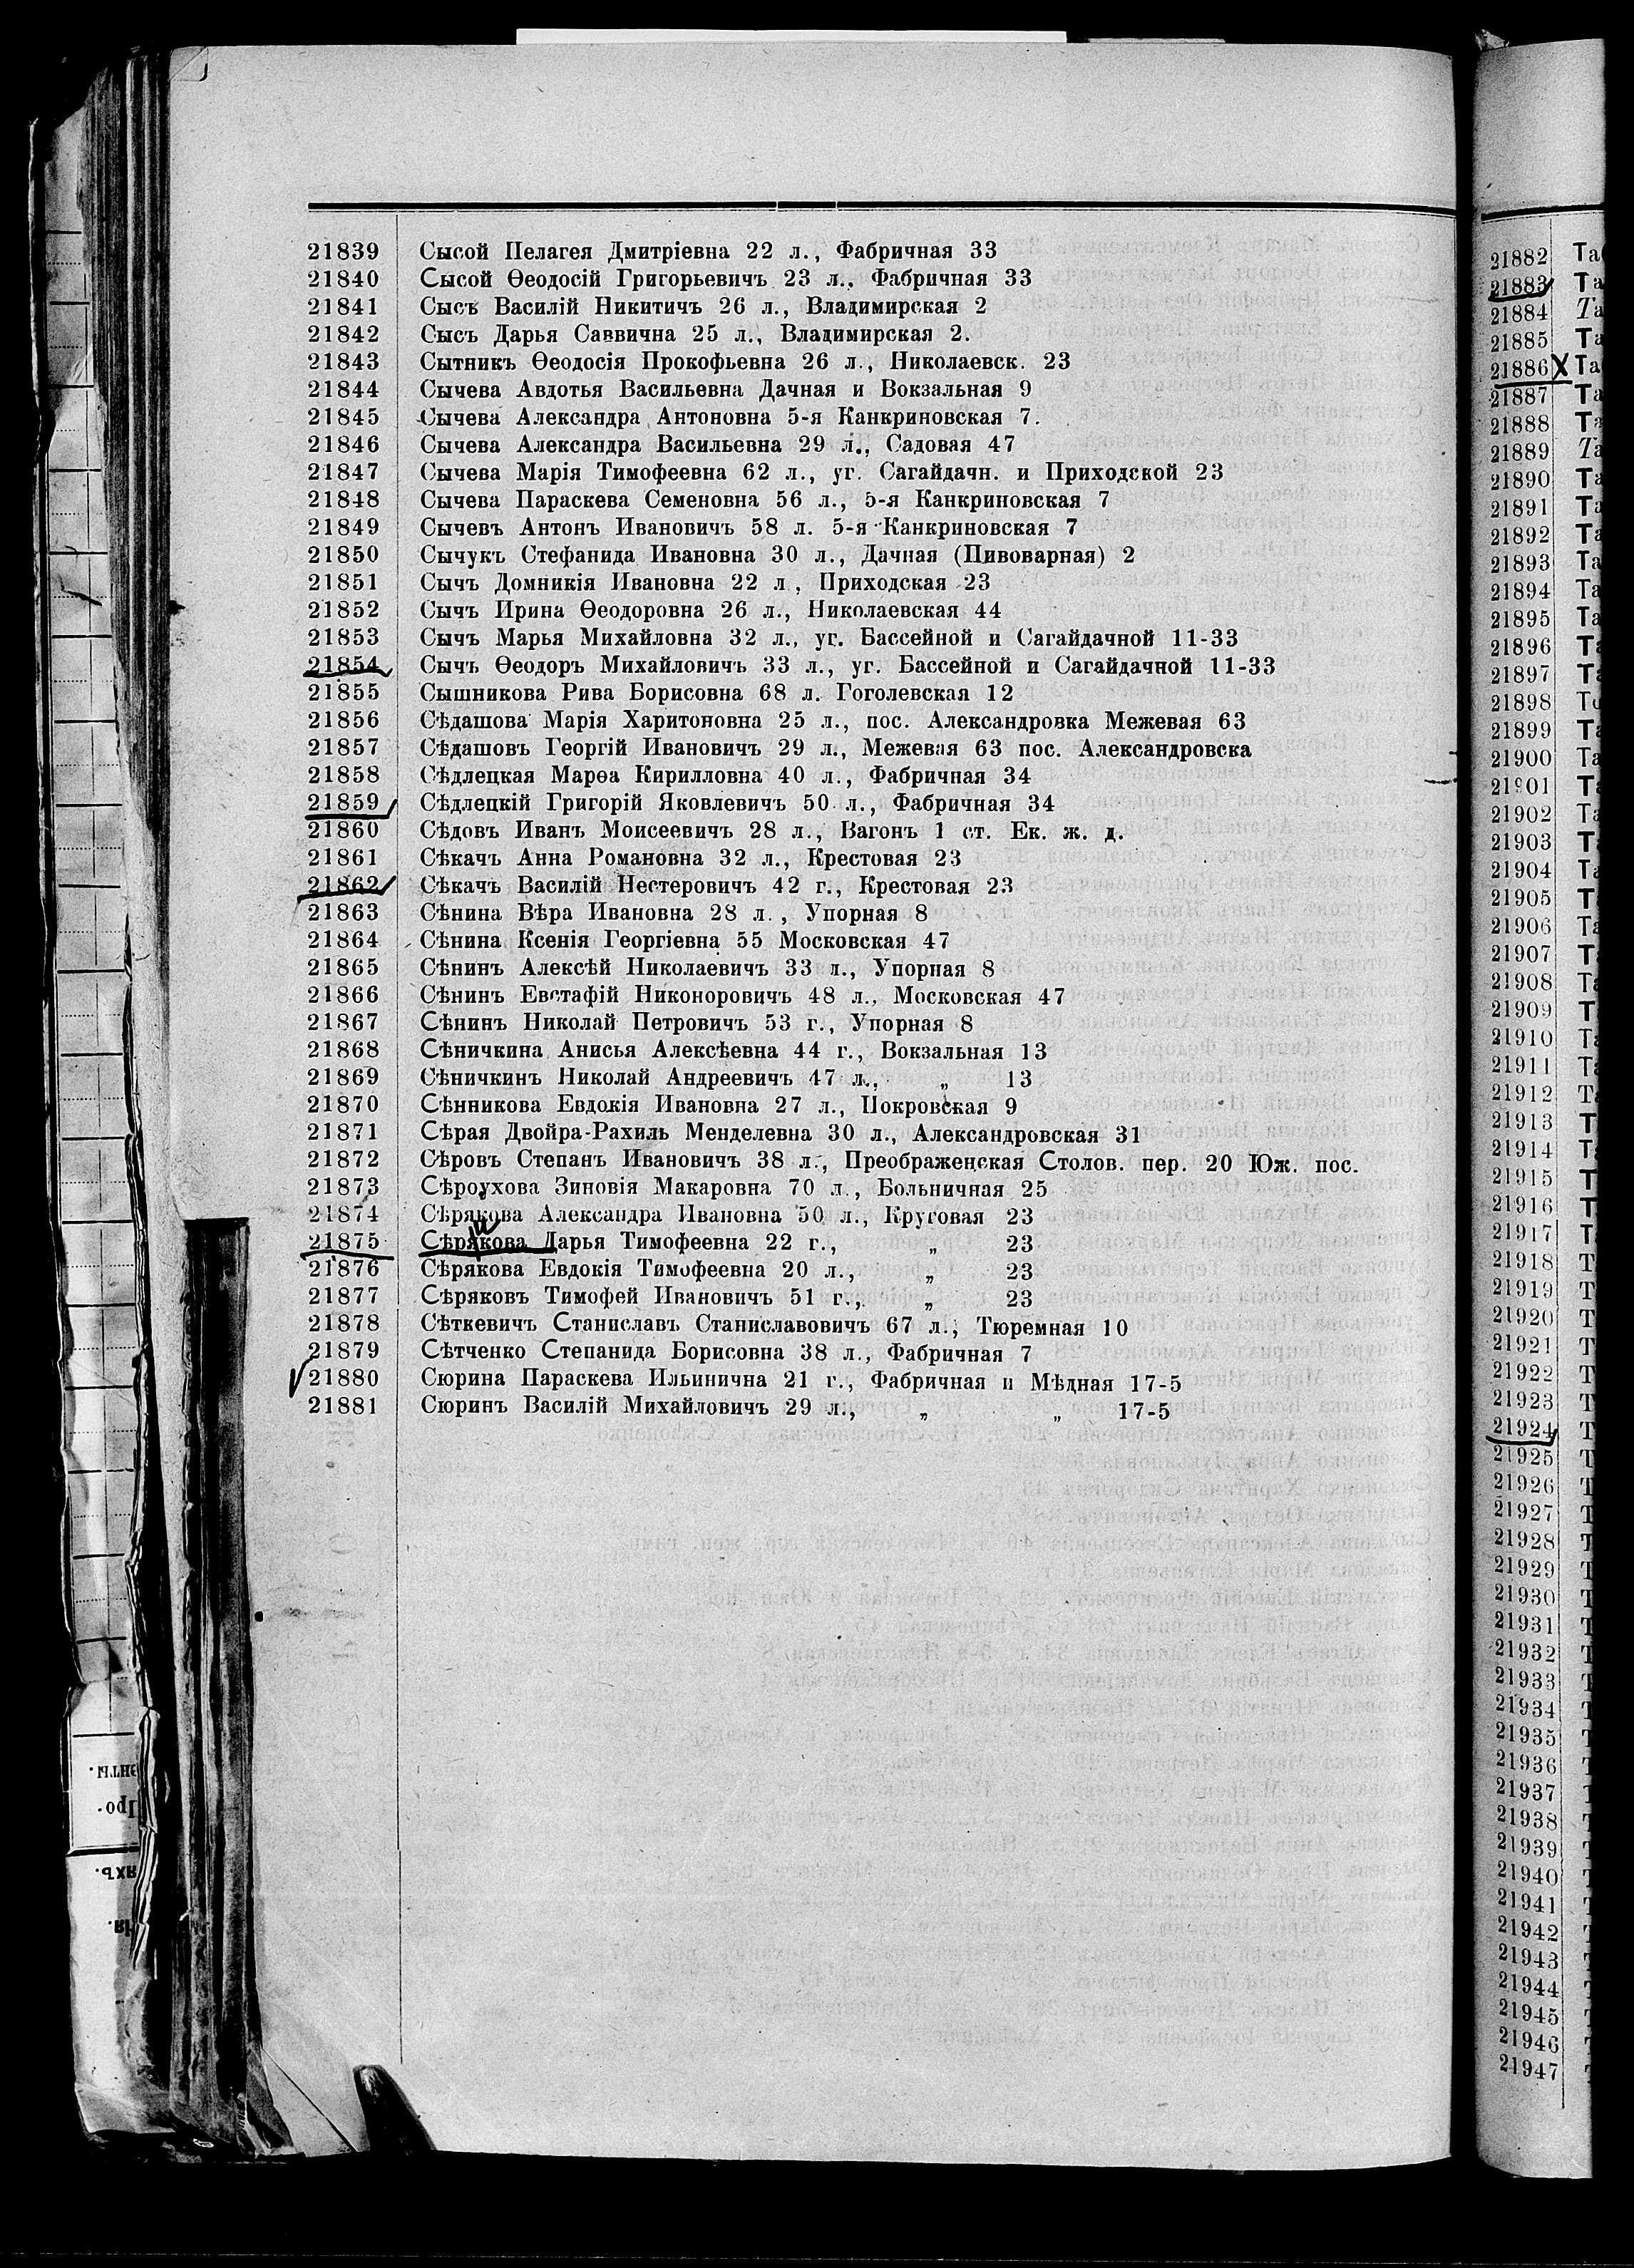 21839 Сысой Пелагея Дмитріевна 22 л., Фабричная 33
21840 Сысой Ѳеодосій Григорьевичъ 23 л., Фабричная 33
21841 Сысъ Василій Никитичъ 26 л., Владимирская 2
21842 Сысъ Дарья Саввична 25 л., Владимирская 2.
21843 Сытникъ Ѳеодосія Прокофьевна 26 л., Николаевск. 23
21844 Сычева Авдотья Васильевна Дачная и Вокзальная 9
21845 Сычева Александра Антоновна 5-я Канкриновская 7.
21846 Сычева Александра Васильевна 29 л., Садовая 47
21847 Сычева Марія Тимофеевна 62 л., уг. Сагайдачн. и Приходской 23
21848 Сычева Параскева Семеновна 56 л., 5-я Канкриновская 7
21849 Сычевъ Антонъ Ивановичъ 58 л. 5-я Канкриновская 7
21850 Сычукъ Стефанида Ивановна 30 л., Дачная (Пивоварная) 2
21851 Сычъ Домникія Ивановна 22 л , Приходская 23
21852 Сычъ Ирина Ѳеодоровна 26 л., Николаевская 44
21853 Сычъ Марья Михайловна 32 л., уг. Бассейной и Сагайдачной 11-33
21854 Сычъ Ѳеодоръ Михайловичъ 33 л., уг. Бассейной и Сагайдачной 11-33
21855 Сышникова Рива Борисовна 68 л. Гоголевская 12
21856 Сѣдашова Марія Харитоновна 25 л., пос. Александровка Межевая 63
21857 Сѣдашовъ Георгій Ивановичъ 29 л., Межевая 63 пос. Александровска
21858 Сѣдлецкая Марѳа Кирилловна 40 л., Фабричная 34
21859 Сѣдлецкій Григорій Яковлевичъ 50 л., Фабричная 34
21860 Сѣдовъ Иванъ Моисеевичъ 28 л., Вагонъ 1 ст. Ек. ж. д.
21861 Сѣкачъ Анна Романовна 32 л., Крестовая 23
21862 Сѣкачъ Василій Нестеровичъ 42 г., Крестовая 23
21863 Сѣнина Вѣра Ивановна 28 л., Упорная 8
21864 Сѣнина Ксенія Георгіевна 55 Московская 47
21865 Сѣнинъ Алексѣй Николаевичъ 33 л., Упорная 8
21866 Сѣнинъ Евстафій Никоноровичъ 48 л., Московская 47
21867 Сѣнинъ Николай Петровичъ 53 г., Упорная 8
21868 Сѣничкина Анисья Алексѣевна 44 г., Вокзальная 13
21869 Сѣничкинъ Николай Андреевичъ 47 л., „ 13
21870 Сѣнникова Евдокія Ивановна 27 л., Покровская 9
21871 Сѣрая Двойра-Рахиль Менделевна 30 л., Александровская 31
21872 Сѣровъ Степанъ Ивановичъ 38 л., Преображенская Столов. пер. 20 Юж. пос.
21873 Сѣроухова Зиновія Макаровна 70 л., Больничная 25
21874 Сѣрякова Александра Ивановна 50 л., Круговая 23
21875 Сѣрякова Дарья Тимофеевна 22 г., „ 23
21876 Сѣрякова Евдокія Тимофеевна 20 л., „ 23
21877 Сѣряковъ Тимофей Ивановичъ 51 г., „ 23
21878 Сѣткевичъ Станиславъ Станиславовичъ 67 л., Тюремная 10
21879 Сѣтченко Степанида Борисовна 38 л., Фабричная 7
21880 Сюрина Параскева Ильинична 21 г., Фабричная и Мѣдная 17-5
21881 Сюринъ Василій Михайловичъ 29 л., „ „ 17-5
21882 Та
21883 Та
21884 Та
21885 Та
21886 Х Та
21887 Та
21888 Та
21889 Та
21890 Та
21891 Та
21892 Та
21893 Та
21894 Та
21895 Та
21896 Та
21897 Та
21898
21899 Та
21900 Та
21901 Та
21902 Та
21903 Та
21904 Та
21905 Т
21906 Та
21907 Т
21908 Та
21909 Т
21910 Та
21911 Та
21912 Та
21913 Т
21914 Та
21915 Т
21916 Т
21917 Т
21918 Т
21919 Т
21920 Т
21921 Т
21922 Т
21923 Т
21924 Т
21925 Т
21926 Т
21927 Т
21928 Т
21929 Т
21930 Т
21931 Т
21932 Т
21933 Т
21934 Т
21935 Т
21936 Т
21937
21938
21939
21940
21941
21942
21943
21944
21945
21946
21947